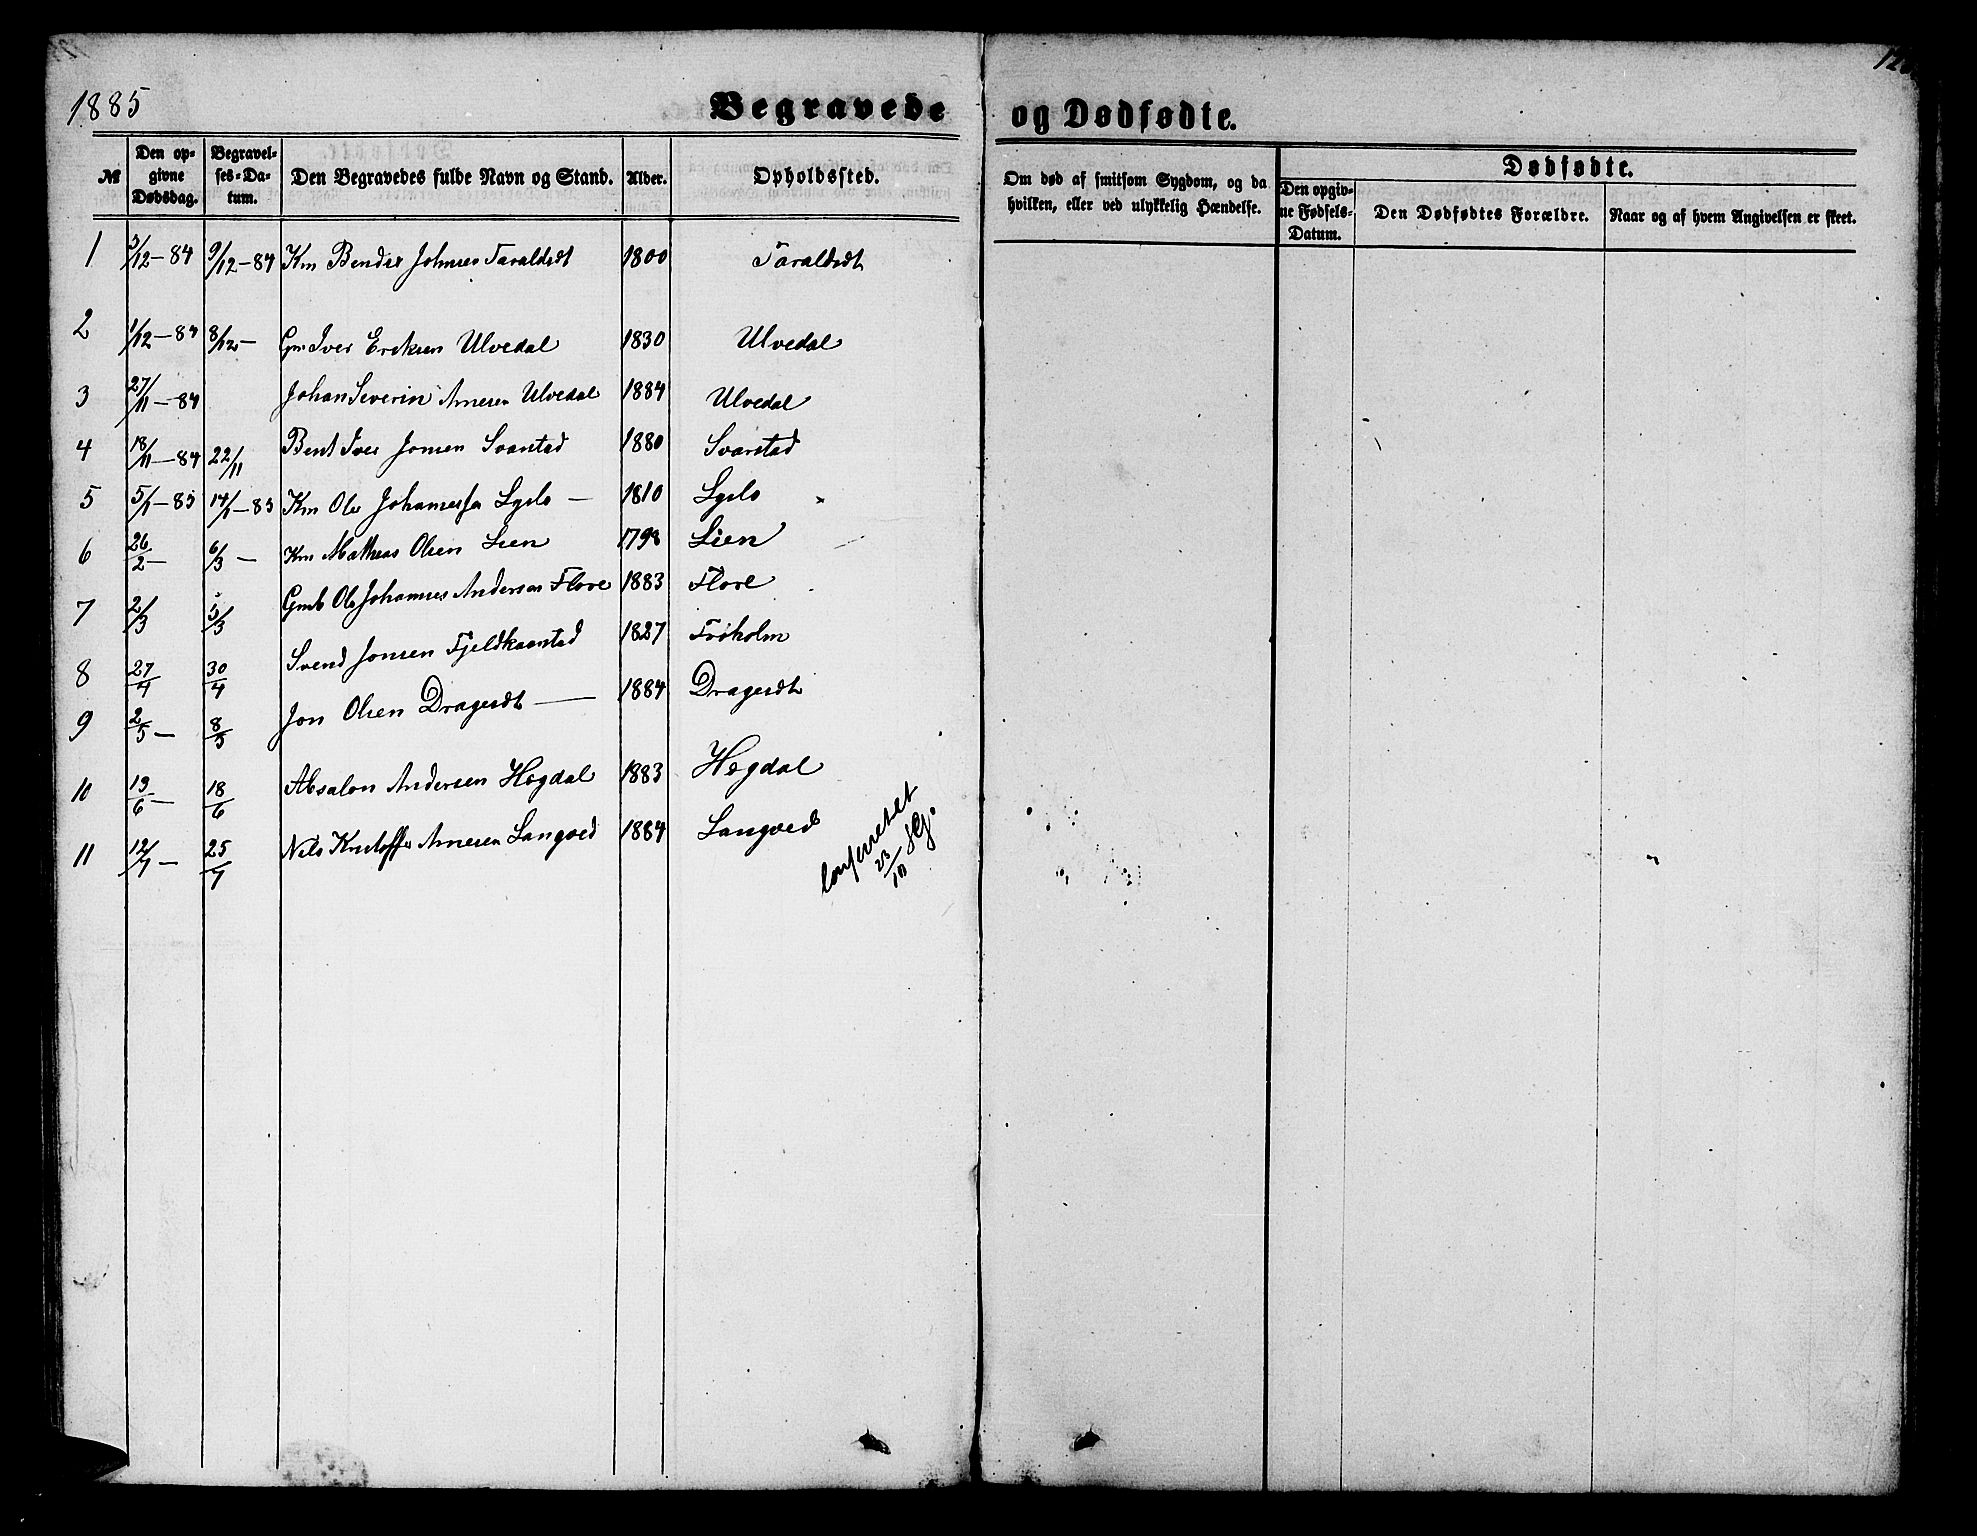 1885
Begravede og Dødfødte.
№ Den opgivne Dødsdag. Begravelses-Datum. Den Begravedes fulde Navn og Stand. Alder. Opholdssted. Om død af smitsom Sygdom, og da hvilken, eller ved ulykkelig Hændelse. Dødfødte. Den opgivne Fødsels-Datum. Den Dødfødtes Forældre. Naar og af hvem Angivelsen er skeet.
1 3/12-84 9/12-84 Km Johnes Taraldsdt 1800 Taraldsdt
2 1/12-84 8/12- Gm Iver Eriksen Ulvedal 1830 Ulvedal
3 27/11-84 Johan Severin Arnesen Ulvedal 1884 Ulvedal
4 18/11-84 22/11 Bent Iver Jonsen Svarstad 1880 Svarstad
5 5/1-85 14/1-85 Km Ole Johannessen - 1810
6 26/2- 6/3- Km Mathias Olsen Lien 1798 Lien
7 2/3 5/3 Gmb Ole Johannes Andersen Flore 1883 Flore
8 27/4 30/4 Svend Jonsen 1827 Frøholm
9 2/5- 8/5 Jon Olsen Dragesdt - 1884 Dragesdt
10 13/6- 18/6 Absalon Andersen Høgdal 1883 Høgdal
11 12/7- 25/7 Nils Kristoffer Arnesen Langved 1884 Langved
confereret
23/10